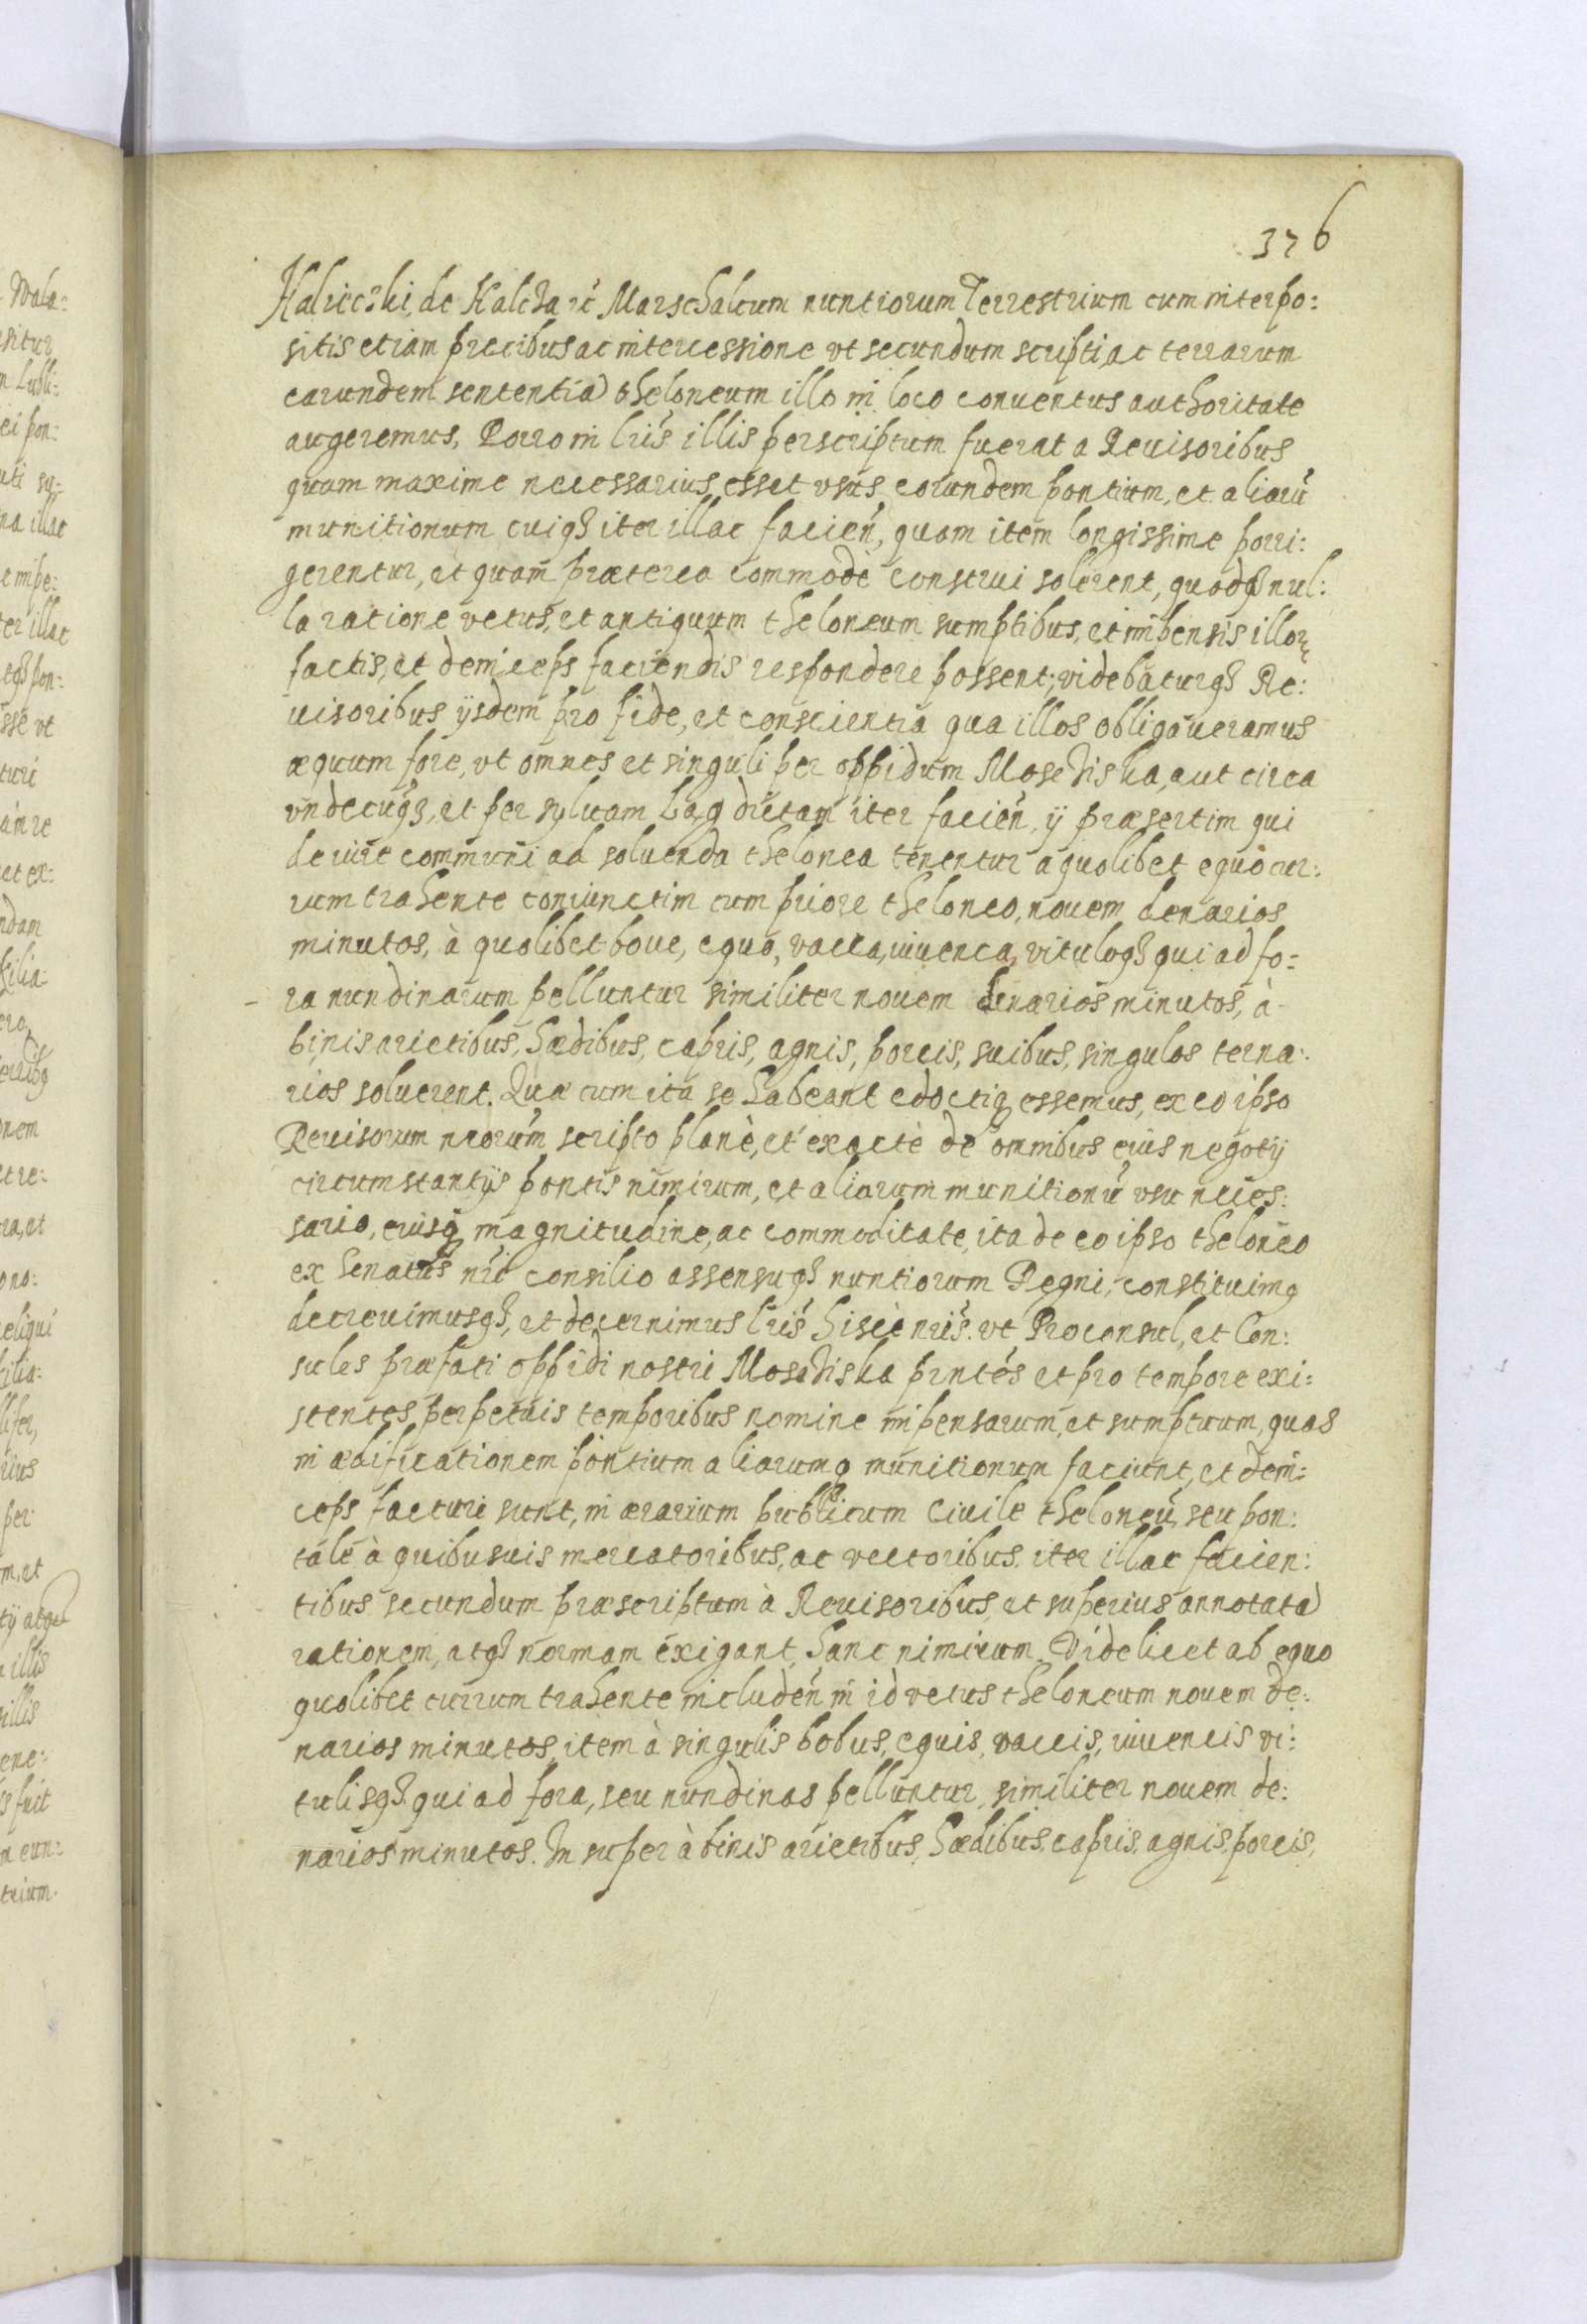 376
Haliczki, de Halcza rć Marschalcum nuntiorum Terrestrium cum interpo:
sitis etiam precibus ac intercessione vt secundum scripti, ac terrarum
earundem sententiā theloneum illo in loco conuentus authoritate
augeremus, Porro in lris illis perscriptum fuerat a Reuisoribus
quam maxime necessarius esset vsus eorundem pontium, et aliarū
munitionum cuiqȝ iter illac facień, quam item longissime porri:
gerentur, et quam præterea commodè construi solerent, quodqȝ nul:
la ratione vetus, et antiquum theloneum sumptibus, et impensis illoꝝ
factis, et deinceps faciendis respondere possent; videbaturqȝ Re:
uisoribus ijsdem pro fide, et conscientia qua illos obligaueramus
æquum fore, vt omnes et singuli per oppidum Mosciska, aut circa
vndecūqȝ, et per syluam Lag dictam iter facień, ij præsertim qui
de iure communi ad soluenda thelonea tenentur a quolibet equo cur:
rum trahente coniunctim cum priore theloneo, nouem denarios
minutos, à quolibet boue, equo, vacca, iuuenca, vituloqȝ qui ad fo:
ra nundinarum pelluntur similiter nouem denarios minutos, à
binis arietibus, hædibus, capris, agnis, porcis, suibus, singulos terna:
rios soluerent. Quæ cum ita se habeant edoctiqȝ essemus, ex eo ipso
Reuisorum nrorum scripto planè, et exactè de omnibus eius negotij
circumstantijs pontis nimirum, et aliarum munitionū vsu neces:
sario, eiusqȝ magnitudine, ac commoditate, ita de eo ipso theloneo
ex Senatus nri consilio assensuqȝ nuntiorum Regni, constituimꝰ
decreuimusqȝ, et decernimus lris hisce nris. vt Proconsul, et Con:
sules præfati oppidi nostri Mosciska prntes et pro tempore exi:
stentes perpetuis temporibus nomine impensarum, et sumptuum, quas
in ædificationem pontium aliarumqȝ munitionum faciunt, et dein:
ceps facturi sunt, in ærarium publicum Ciuile theloneū, seu pon:
tale à quibusuis mercatoribus, ac vectoribus iter illac facien:
tibus secundum præscriptum à Reuisoribus, et superius annotatā
rationem, atqȝ normam exigant, hanc nimirum. Videlicet ab equo
quolibet currum trahente includeń in id vetus theloneum nouem de:
narios minutos, item à singulis bobus, equis, vaccis, iuuencis vi:
tulisqȝ qui ad fora, seu nundinas pelluntur, similiter nouem de:
narios minutos. In super à binis arietibus, hædibus, capris, agnis, porcis,